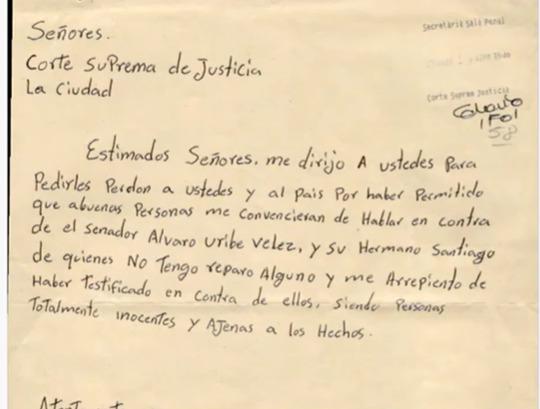 Señores.
Secretaría Sala Penal
Corte Suprema de Justicia
La Ciudad
Corte Suprema Justicia
1 FOl
58
Estimados Señores, me dirijo A ustedes Para
Pedirles Perdon a ustedes y al Pais Por haber Permitido
que abuenas Personas me Convencieran de Hablar en contra
de el Senador Alvaro Uribe Velez, y su Hermano Santiago
de quienes No Tengo reparo Alguno y me Arrepiento de
Haber Testificado en Contra de ellos, siendo Personas
Totalmente inocentes y AJenas a los Hechos.